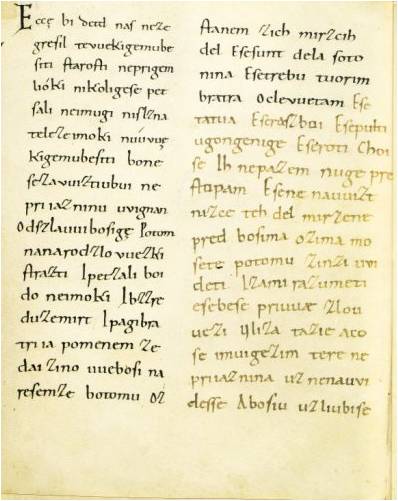 Eccę bi detd naſ neze
greſil teuuekigemube
ſiti ſtaroſti neprigem
lióki nikoligeſe pet
ſali neimugi niſlzna
telezeimoki nuúvuę
kigemubeſiti bone
ſezavuiztiubui ne
priiazninu uvignan
Odszlauuiboſigę Potom
nanarodzlovuezki
ſtrazti Ipetzali boi
do neimoki Ibzzre
duzemirt Ipagibra
triia pomenem ze
dai zino uuebosi na
resemze botomu oz
ſtanem zich mirzcih
del Eſeſunt dela soto
nina Eſetrebu tuorim
bratra Oclevuetam Eſe
tatua Eſerazboi Eſepulti
ugongenige Eſeroti Choi
se Ih nepazem nuge pre
ſtopam Eſene nauuizt
nizce teh del mirzene
pred bosima ozima mo
sete potomu zinzi uvi
deti Izami razumeti
esebese priuuæ zlou
uezi Uliza tazie aco
se imuigezim tere ne
priiaznina uz nenauvi
desse Abosiu uzliubise